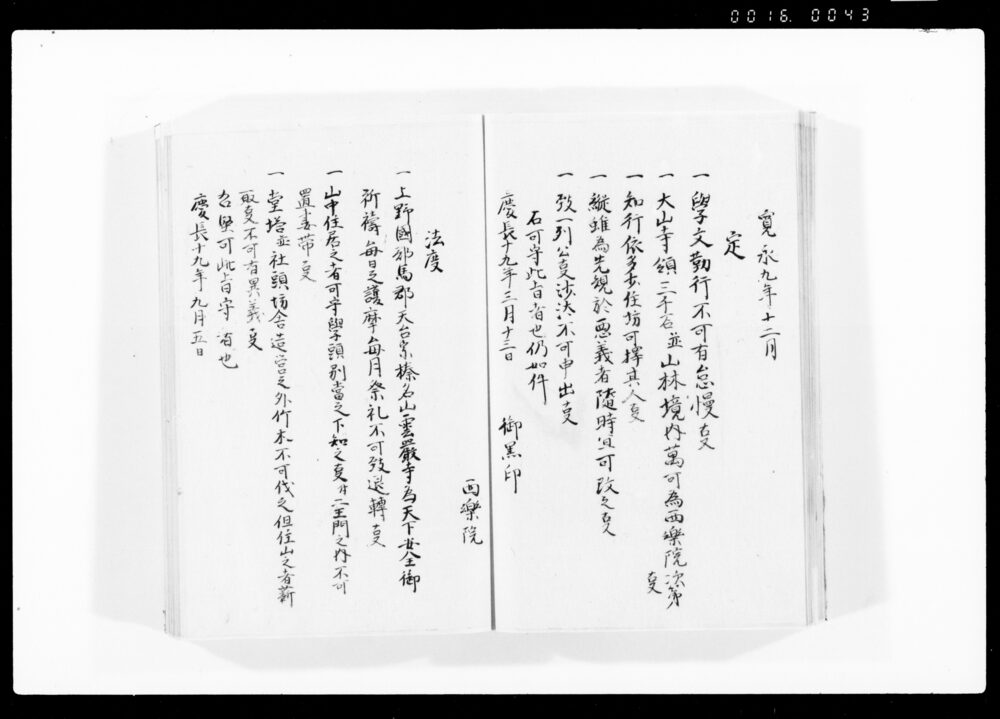 0016. 0043
寛永九年十二月
定
一 學文勤行不可有怠慢事
一 大山寺領三千石並山林境内萬可為西樂院次第
事
一 知行依多少住坊可擇其人事
一 縦雖為先規於悪義者随時宜可改之事
一 致一列公事沙汰不可申出事
右可守此旨者也仍如件
慶長十九年三月十三日 御黒印
西樂院
法度
一 上野國群馬郡天台宗榛名山巖寺為天下安全御
祈禱毎日之護摩毎月祭礼不可致退轉事
一 山中住居之者可守學頭別當之下知之事 付二王門之内不可
置妻帯事
一 堂塔並社頭坊舎造営之外竹木不可伐之但住山之者薪
取事不可有異義事
右堅可此旨守者也
慶長十九年九月五日